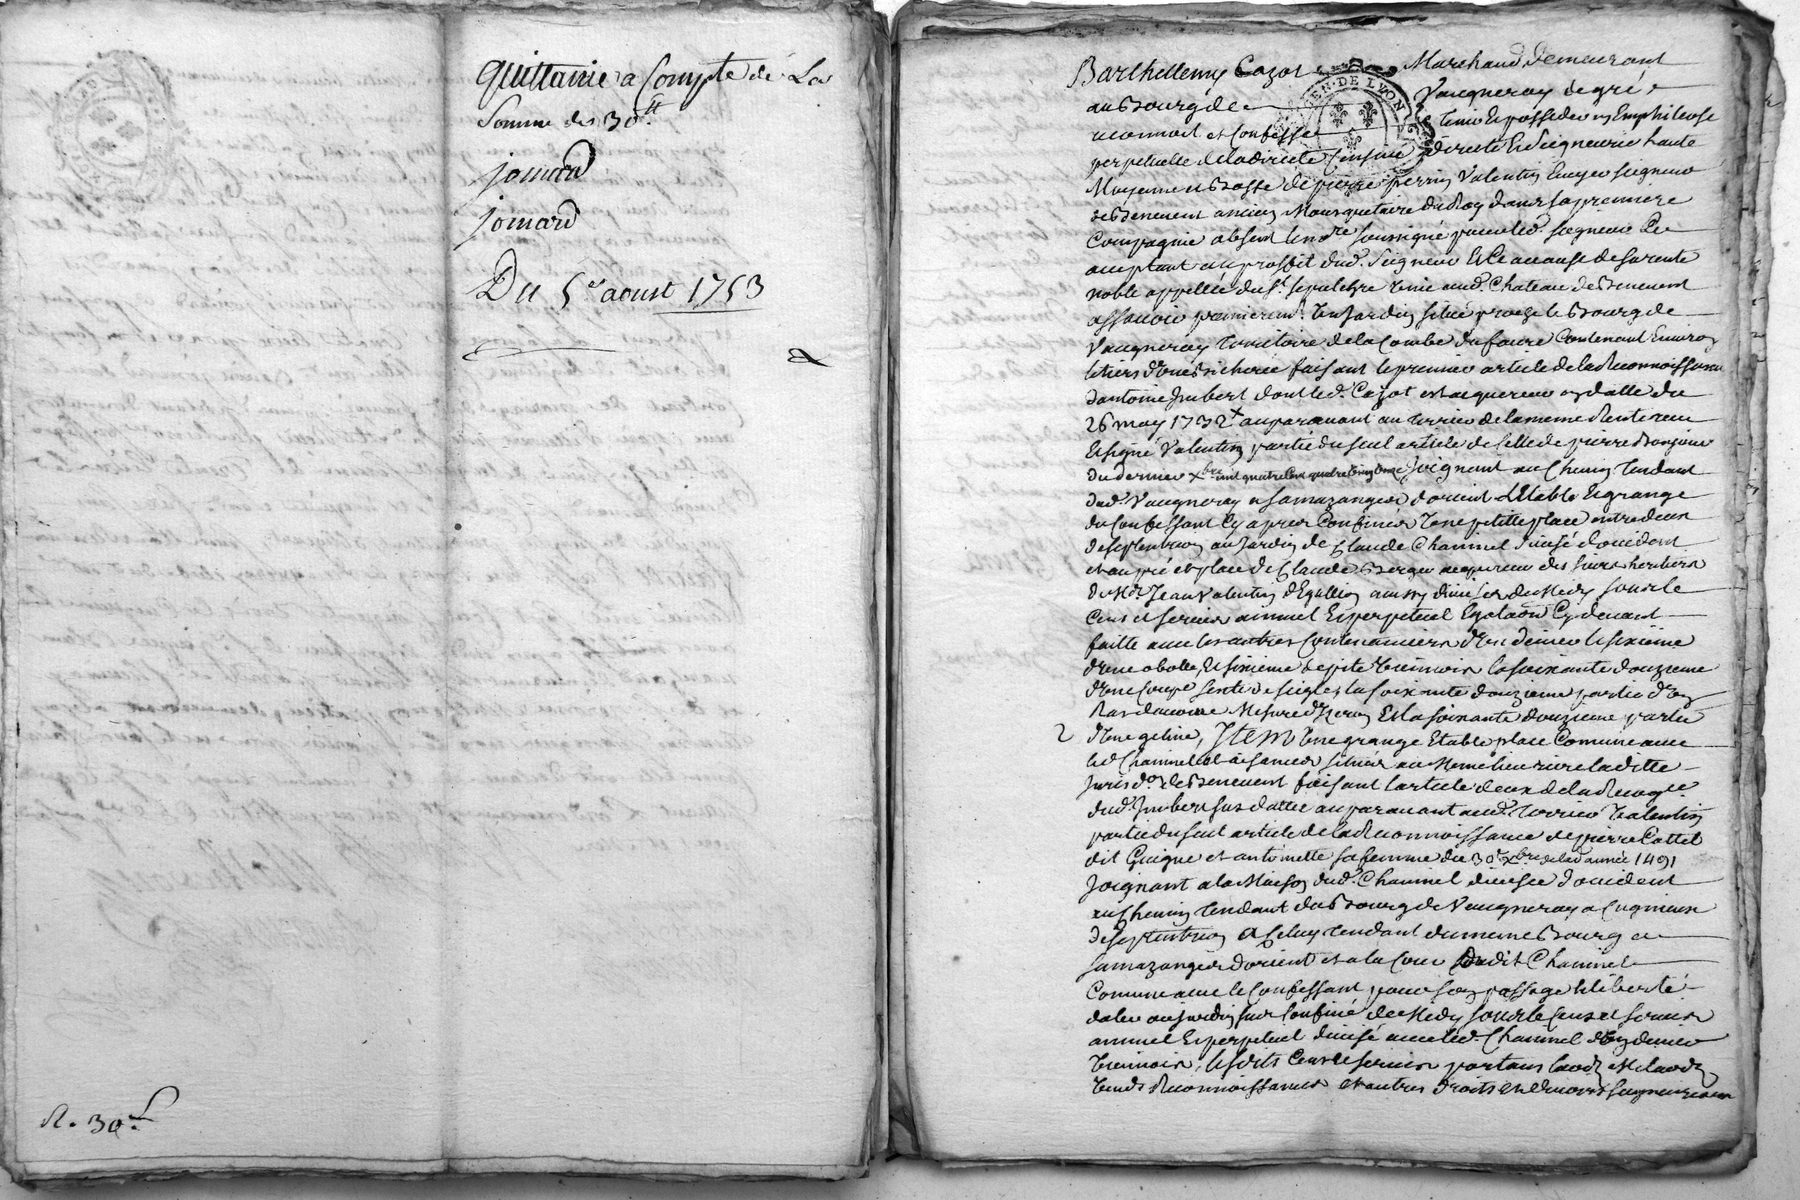 quittance a Compte de La
Somme de 30ᵗᵗ
jomard
jomard
Du 5ᵉ aoust 1753
R. 30ˢ
GEN. DE LYON
Barthellemy Cozot Marchand demeurant
au Bourg de Vaugneray de gré
reconnoit et Confesse tenir Et posseder en Emphiteose
perpetuelle de la directe Censive directe Et Seigneurie haute
Moyenne et Basse de pierre perrin Valentin Ecuyer seigneur
de Benevent ancien Mousquetaire du Roy dans sa premiere
Compagnie absent le no.re soussigné pour led. seigneur
acceptant au proffit dud. Seigneur Et Ce a cause de sa rente
noble appellée du S.t Sepulchre Unie aud. Chateau de Benevent
assavoir premierem.t Un Jardin situé proche le Bourg de
Vaugneray territoire de la Combe du faure Contenant Environ
le tiers d'une Bicherée faisant le premier article de la Reconnoissance
d'antoine Imbert dont led. Cozot est acquereur en datte du
26 may 1732 auparavant au terrier de la meme Rente receu
Et signé Valentin partie du seul article de Celle de pierre Bonjour
du dernier xbre mil quatre Cent quatre vingt onze Joignant au Chemin tendant
dud. Vaugneray a Jamazangeo d'orient l'Etable Et grange
du Confessant Cy apres Confinées Une petitte place entre deux
de septentrion au Jardin de Claude Chaminel divisé d'occident
et au pré et place de Claude Berger acquereur des sieurs heritiers
de M.e Jean Valentin d'Egullion aussy divisés de Midy sous le
Cens et servis annuel Et perpetuel Egalaôn Cy devant
faitte avec les autres Contenanciers d'Un denier le sixieme
d'une obolle, Et sixieme de pite Viennois la soixante douzieme
d'Une Coupe seule de seigle, la soixante douzieme partie d'un
Ras d'avoine Mesure d'Yzeron Et la soixante douzieme partie
2 d'Une geline, Item Une grange Etable place Commune avec
led. Chaminel et aisances situés au Meme lieu riere laditte
Jurisd.on de Benevent faisant l'article deux de la Recog.ce
dud. Imbert sus datté auparavant aud. terrier Valentin
partie du seul article de la Reconnoissance de pierre Cottel
dit Guigue et antoinette sa femme du 30e xbre de lad. année 1491
Joignant a la Maison dud. Chaminel divisée d'occident
au Chemin tendant du Bourg de Vaugneray a Cugnieux
de septentrion a Celuy tendant du meme Bourg a
Jamazangeo d'orient et a la Cour Dudit Chaminel
Commune avec le Confessant pour son passage Et liberté
d'aler au Jardin sus Confiné de Midy sous le Cens et servis
annuel Et perpetuel divisé avec led. Chaminel d'Un denier
Viennois, lesdits Cens et servis portans laods Milaods
Vends Reconnoissances et autres droits Et devoirs seigneuriaux